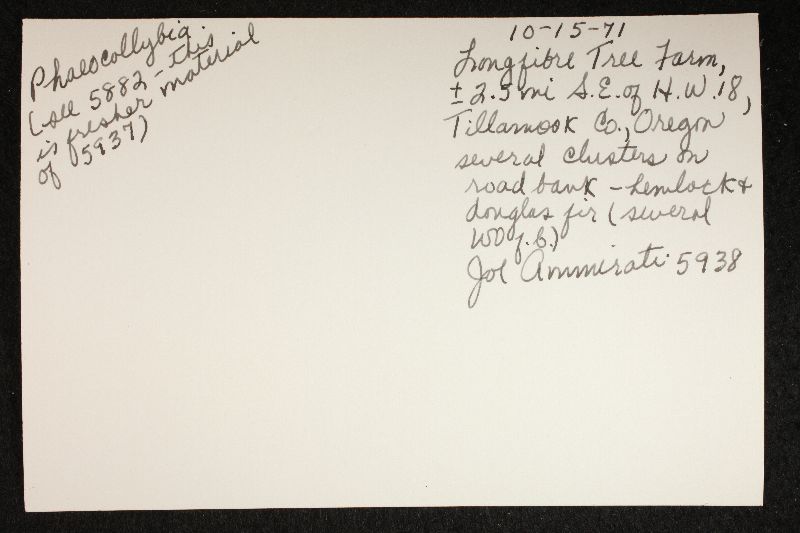 Phaeocollybia
(see 5882 - this
is fresher material
of 5937)
10-15-71
Longfibre Tree Farm,
± 2.5 mi S.E. of H.W. 18,
Tillamook Co., Oregon
several clusters on
road bank - hemlock &
douglas fir (several
100 f.b.)
Joe Ammirati 5938